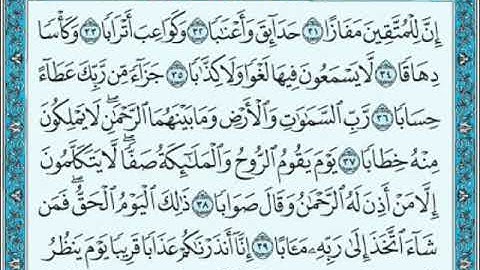 إِنَّ لِلْمُتَّقِينَ مَفَازًا ٣١ حَدَآئِقَ وَأَعْنَٰبًا ٣٢ وَكَوَاعِبَ أَتْرَابًا ٣٣ وَكَأْسًا
دِهَاقًا ٣٤ لَّا يَسْمَعُونَ فِيهَا لَغْوًا وَلَا كِذَّٰبًا ٣٥ جَزَآءً مِّن رَّبِّكَ عَطَآءً
حِسَابًا ٣٦ رَّبِّ ٱلسَّمَٰوَٰتِ وَٱلْأَرْضِ وَمَا بَيْنَهُمَا ٱلرَّحْمَٰنِ ۖ لَا يَمْلِكُونَ
مِنْهُ خِطَابًا ٣٧ يَوْمَ يَقُومُ ٱلرُّوحُ وَٱلْمَلَٰٓئِكَةُ صَفًّا ۖ لَّا يَتَكَلَّمُونَ
إِلَّا مَنْ أَذِنَ لَهُ ٱلرَّحْمَٰنُ وَقَالَ صَوَابًا ٣٨ ذَٰلِكَ ٱلْيَوْمُ ٱلْحَقُّ ۖ فَمَن
شَآءَ ٱتَّخَذَ إِلَىٰ رَبِّهِۦ مَـَٔابًا ٣٩ إِنَّآ أَنذَرْنَٰكُمْ عَذَابًا قَرِيبًا يَوْمَ يَنظُرُ